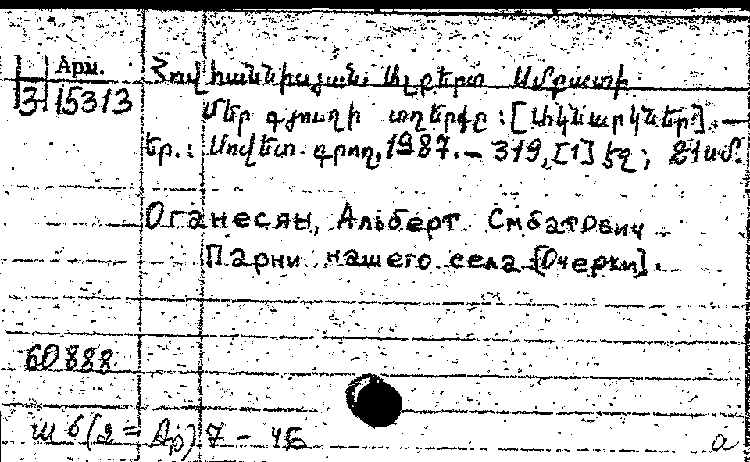 Арм.
3-15313
Հովհաննիսյան Ալբերտ Սմբատի
Մեր գյուղի տղերքը: [Ակնարկներ]. —
Եր.: Սովետ. գրող, 1987. — 319, [1] էջ; 21սմ.
Оганесян, Альберт Смбатович
Парни нашего села [Очерки].
60888
ш6(2=Ар)7 - 4Б
а